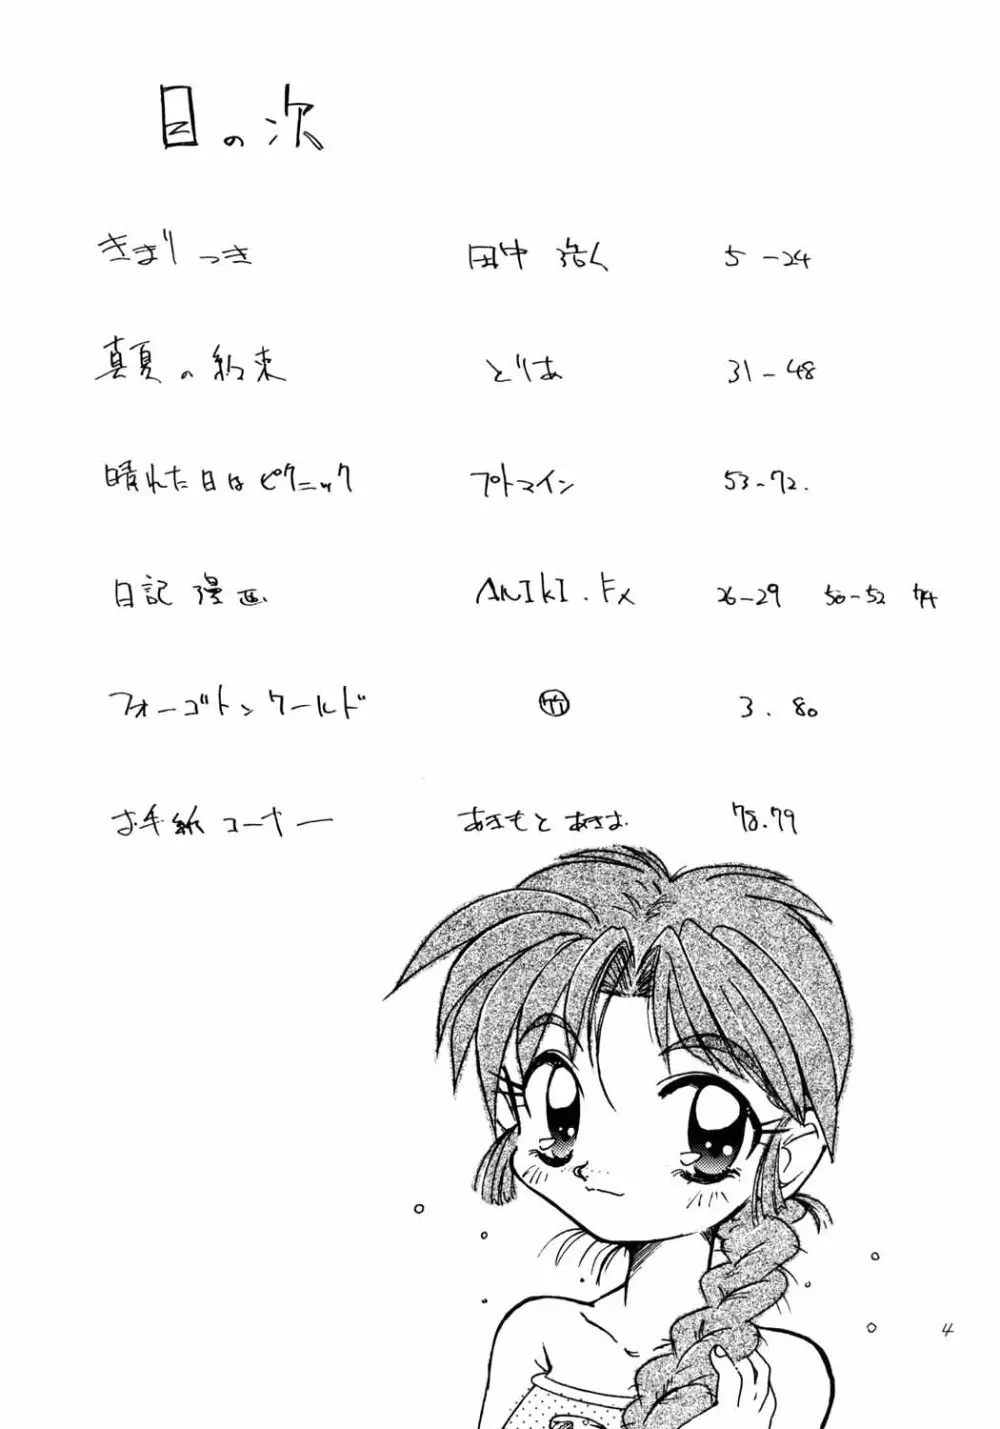 目の次
きまりつき 田中 浩人 5-24
真夏の約束 とりあ 31-48
晴れた日はピクニック プトマイン 53-72.
日記漫画 ANIKI.Fx 26-29 50-52 74
フォーゴトンワールド 竹 3.80
お手紙コーナー あきもと あきお 78.79
4